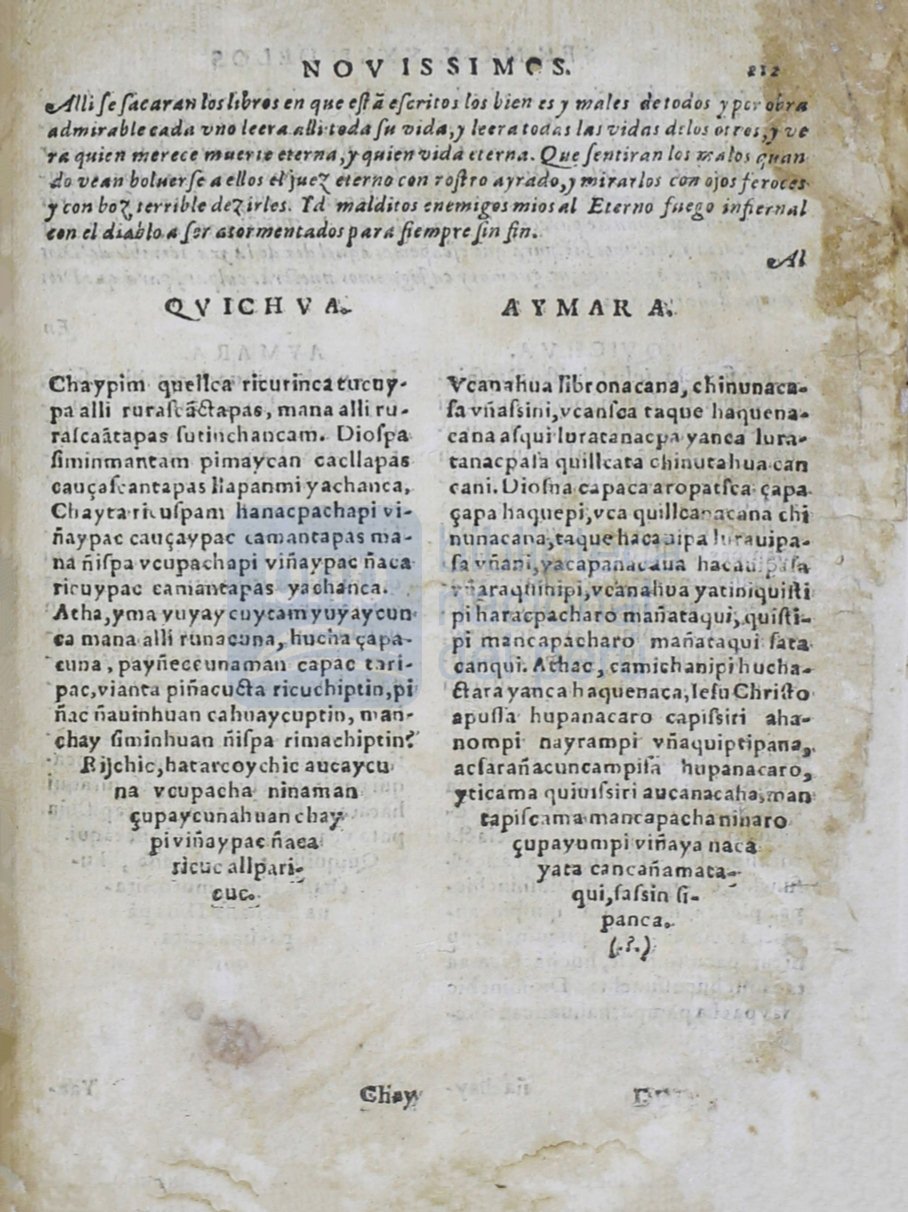 NOVISSIMOS. 212
Alli se sacaran los libros en que estã escritos los bienes y males de todos y por obra
admirable cada vno leera alli toda su vida, y leera todas las vidas delos otros, y ve
ra quien merece muerte eterna, y quien vida eterna. Que sentiran los malos quan
do vean boluerse a ellos el juez eterno con rostro ayrado, y mirarlos con ojos feroces
y con boz terrible dezirles. Yd malditos enemigos mios al Eterno fuego infiernal
con el diablo a ser atormentados para siempre sin fin.
Al
QVICHVA.
Chaypim quellca ricurincatucuy-
pa alli rurascãctapas, mana alli ru-
rascaãtapas sutinchancam. Diospa
siminmantam pimaycan cacllapas
cauçascantapas llapanmi yachanca,
Chayta ricuspam hanacpachapi vi-
ñaypac cauçaypac camantapas ma-
na ñispa vcupachapi viñaypac ñaca
ricuypac camantapas yachanca.
Atha, yma yuyaycuytam yuyaycun
ca mana alli runacuna, hucha çapa-
cuna, payñeccunaman capac tari-
pac, vianta piñacucta ricuchiptin, pi
ñac ñauinhuan cahuaycuptin, man-
chay siminhuan ñispa rimachiptin?
Rijchic, hatarcoychic aucaycu
na vcupacha ninaman
çupaycunahuan chay
pi viñaypac ñaca
ricuc allpari-
cuc.
AYMARA.
Vcanahua libronacana, chinunaca-
sa vñassini, vcansca taque haquena-
cana asqui luratanacpa yanca lura-
tanacpasa quillcata chinutahua can
cani. Diosna capaca aropatsca çapa
çapa haquepi, vca quillcanacana chi
nunacana, taque
sa vñani,
vcanahua yatiniquisti
pi haracpacharo mañataqui, quisti-
pi mancapacharo mañataqui sata
canqui. Athac, camichanipi hucha-
ctara yanca haquenaca, Iesu Christo
apussa hupanacaro capissiri aha-
nompi nayrampi vñaquiptipana,
acsarañacuncampisa hupanacaro,
yticama quiuissiri aucanacaha, man
tapiscama mancapacha ninaro
çupayumpi viñaya naca
yata cancañamata-
qui, sassin si-
panca.
(.?.)
Chay